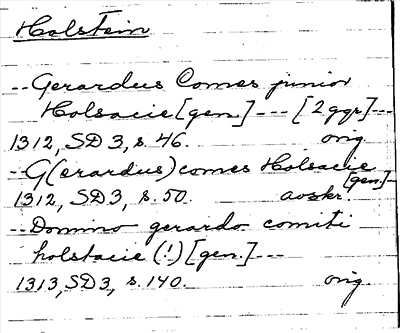 Holstein
-- Gerardus Comes junior
Holsacie [gen.] --- [2 ggr] ---
1312, SD 3, s. 46. orig.
- G(erardus) comes Holsacie
[gen.] -
1312, SD 3, s. 50. avskr.
-- Domino gerardo comiti
holstacie (!) [gen.] ---
1313, SD 3, s. 140. orig.